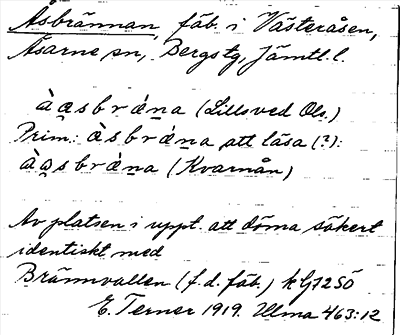 Åsbrännan, fäb. i Västeråsen,
Åsarne sn, Bergs tg, Jämtl. l.
àa̱sbrǽna (Lillsved Ols.)
Prim.: àsbrǽna att läsa (?):
àa̱sbrǽna (Kvarnån)
Av platsen i uppt. att döma säkert
identiskt med
Brännvallen (f.d. fäb.) kGJ2SÖ
E. Terner 1919. Ulma 463:12